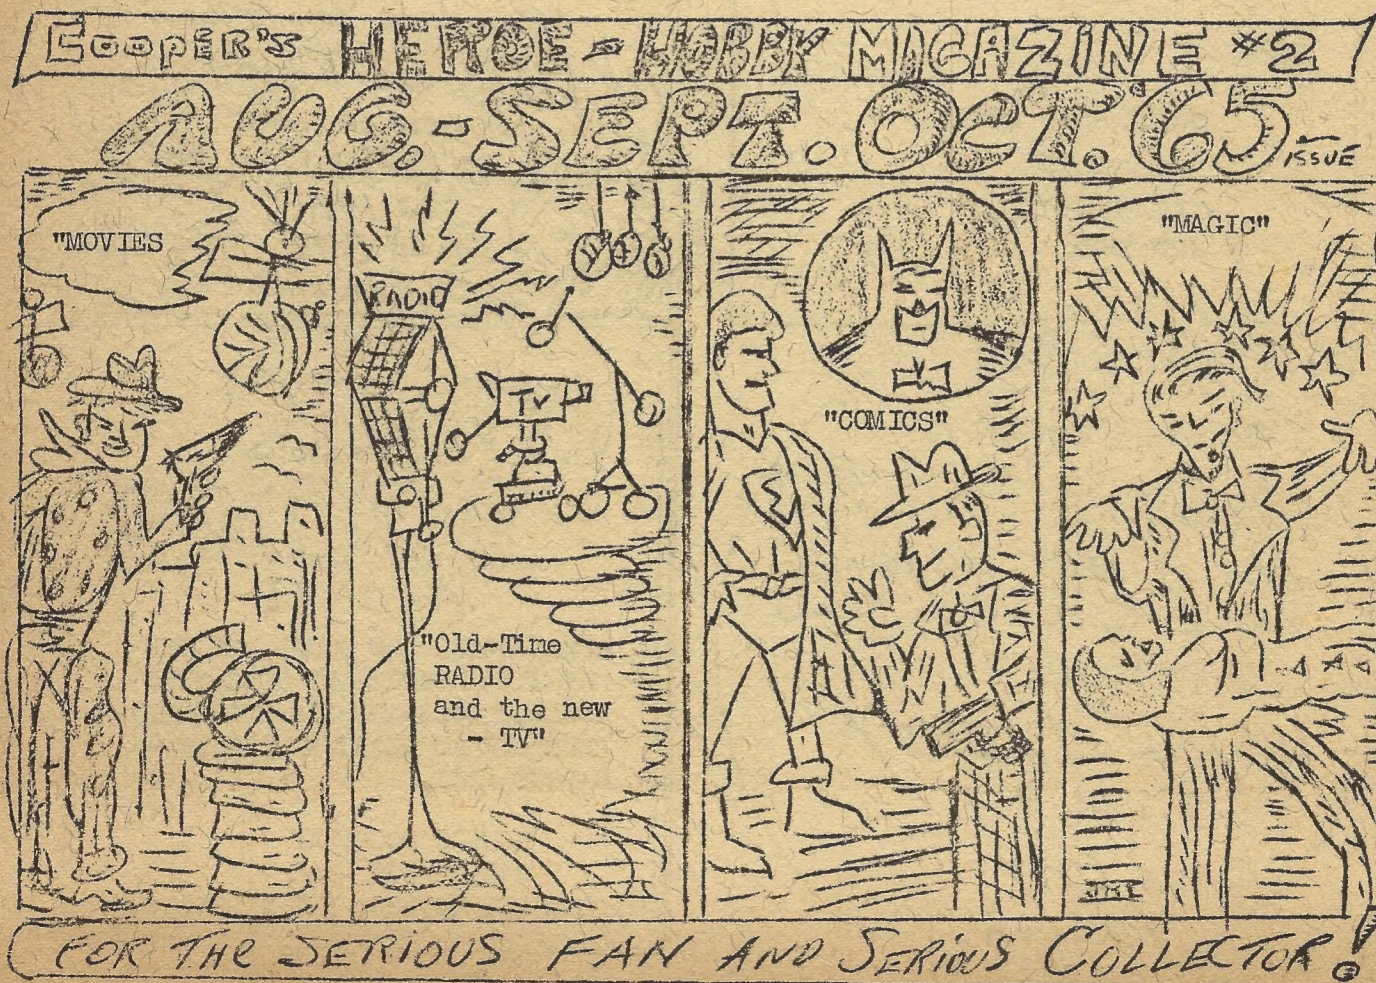 COOPER'S HEROE-HOBBY MAGAZINE #2
AUG.-SEPT. OCT. '65 ISSUE
"MOVIES
RADIO
TV
"Old-Time
RADIO
and the new
- TV"
"COMICS"
"MAGIC"
FOR THE SERIOUS FAN AND SERIOUS COLLECTOR!